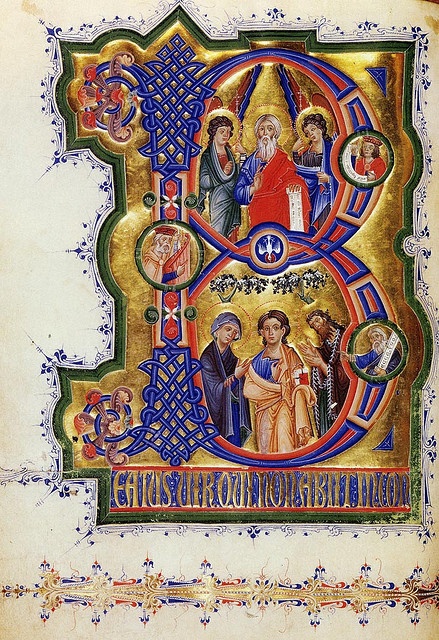 B
EATUS VIR QUI NON ABIIT IN CON